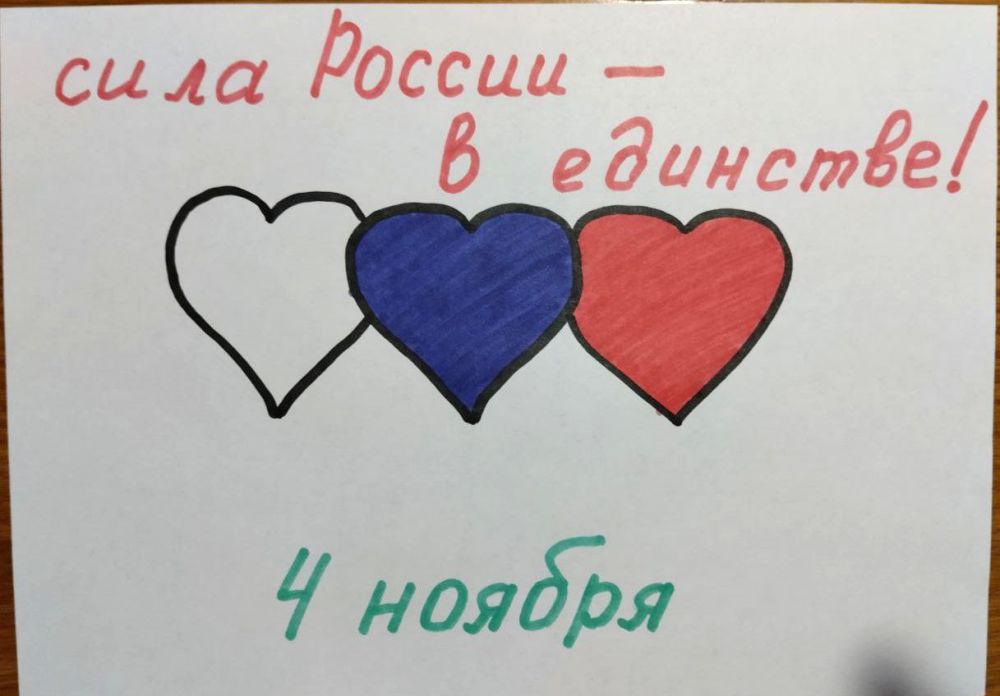 сила России —
в единстве!
4 ноября